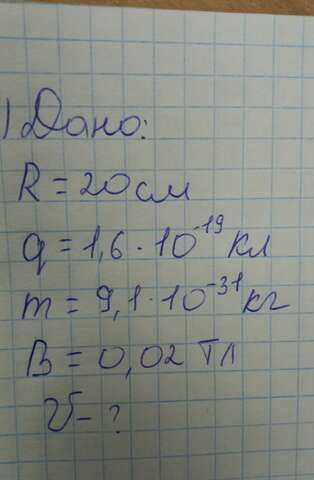 1) Дано:
R = 20 см
q = 1,6 · 10⁻¹⁹ Кл
m = 9,1 · 10⁻³¹ кг
B = 0,02 Тл
V - ?